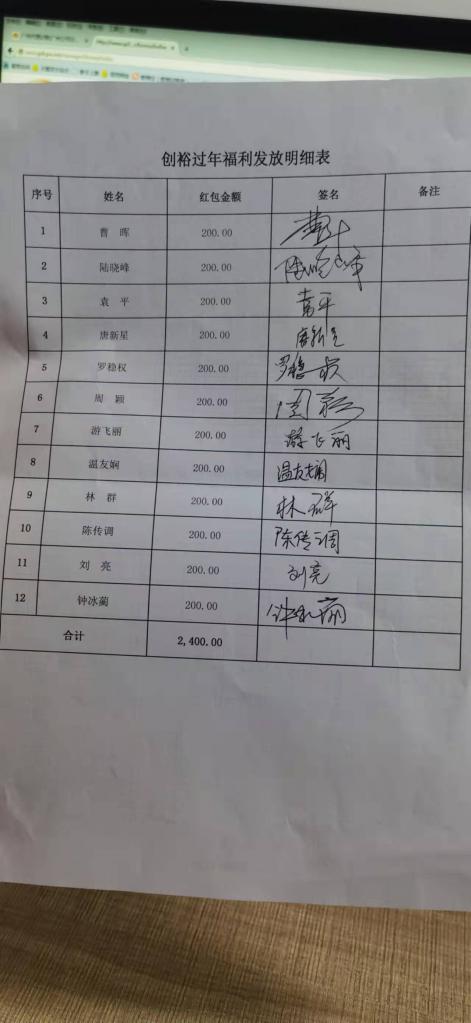 创裕过年福利发放明细表
序号 姓名 红包金额 签名 备注
1 曹 晖 200.00
2 陆晓峰 200.00 陆晓峰
3 袁 平 200.00 袁平
4 唐新星 200.00 唐新星
5 罗稳权 200.00 罗稳权
6 周 颖 200.00 周颖
7 游飞丽 200.00 游飞丽
8 温友娴 200.00 温友娴
9 林 群 200.00 林群
10 陈传调 200.00 陈传调
11 刘 亮 200.00 刘亮
12 钟冰蔺 200.00
合计 2,400.00